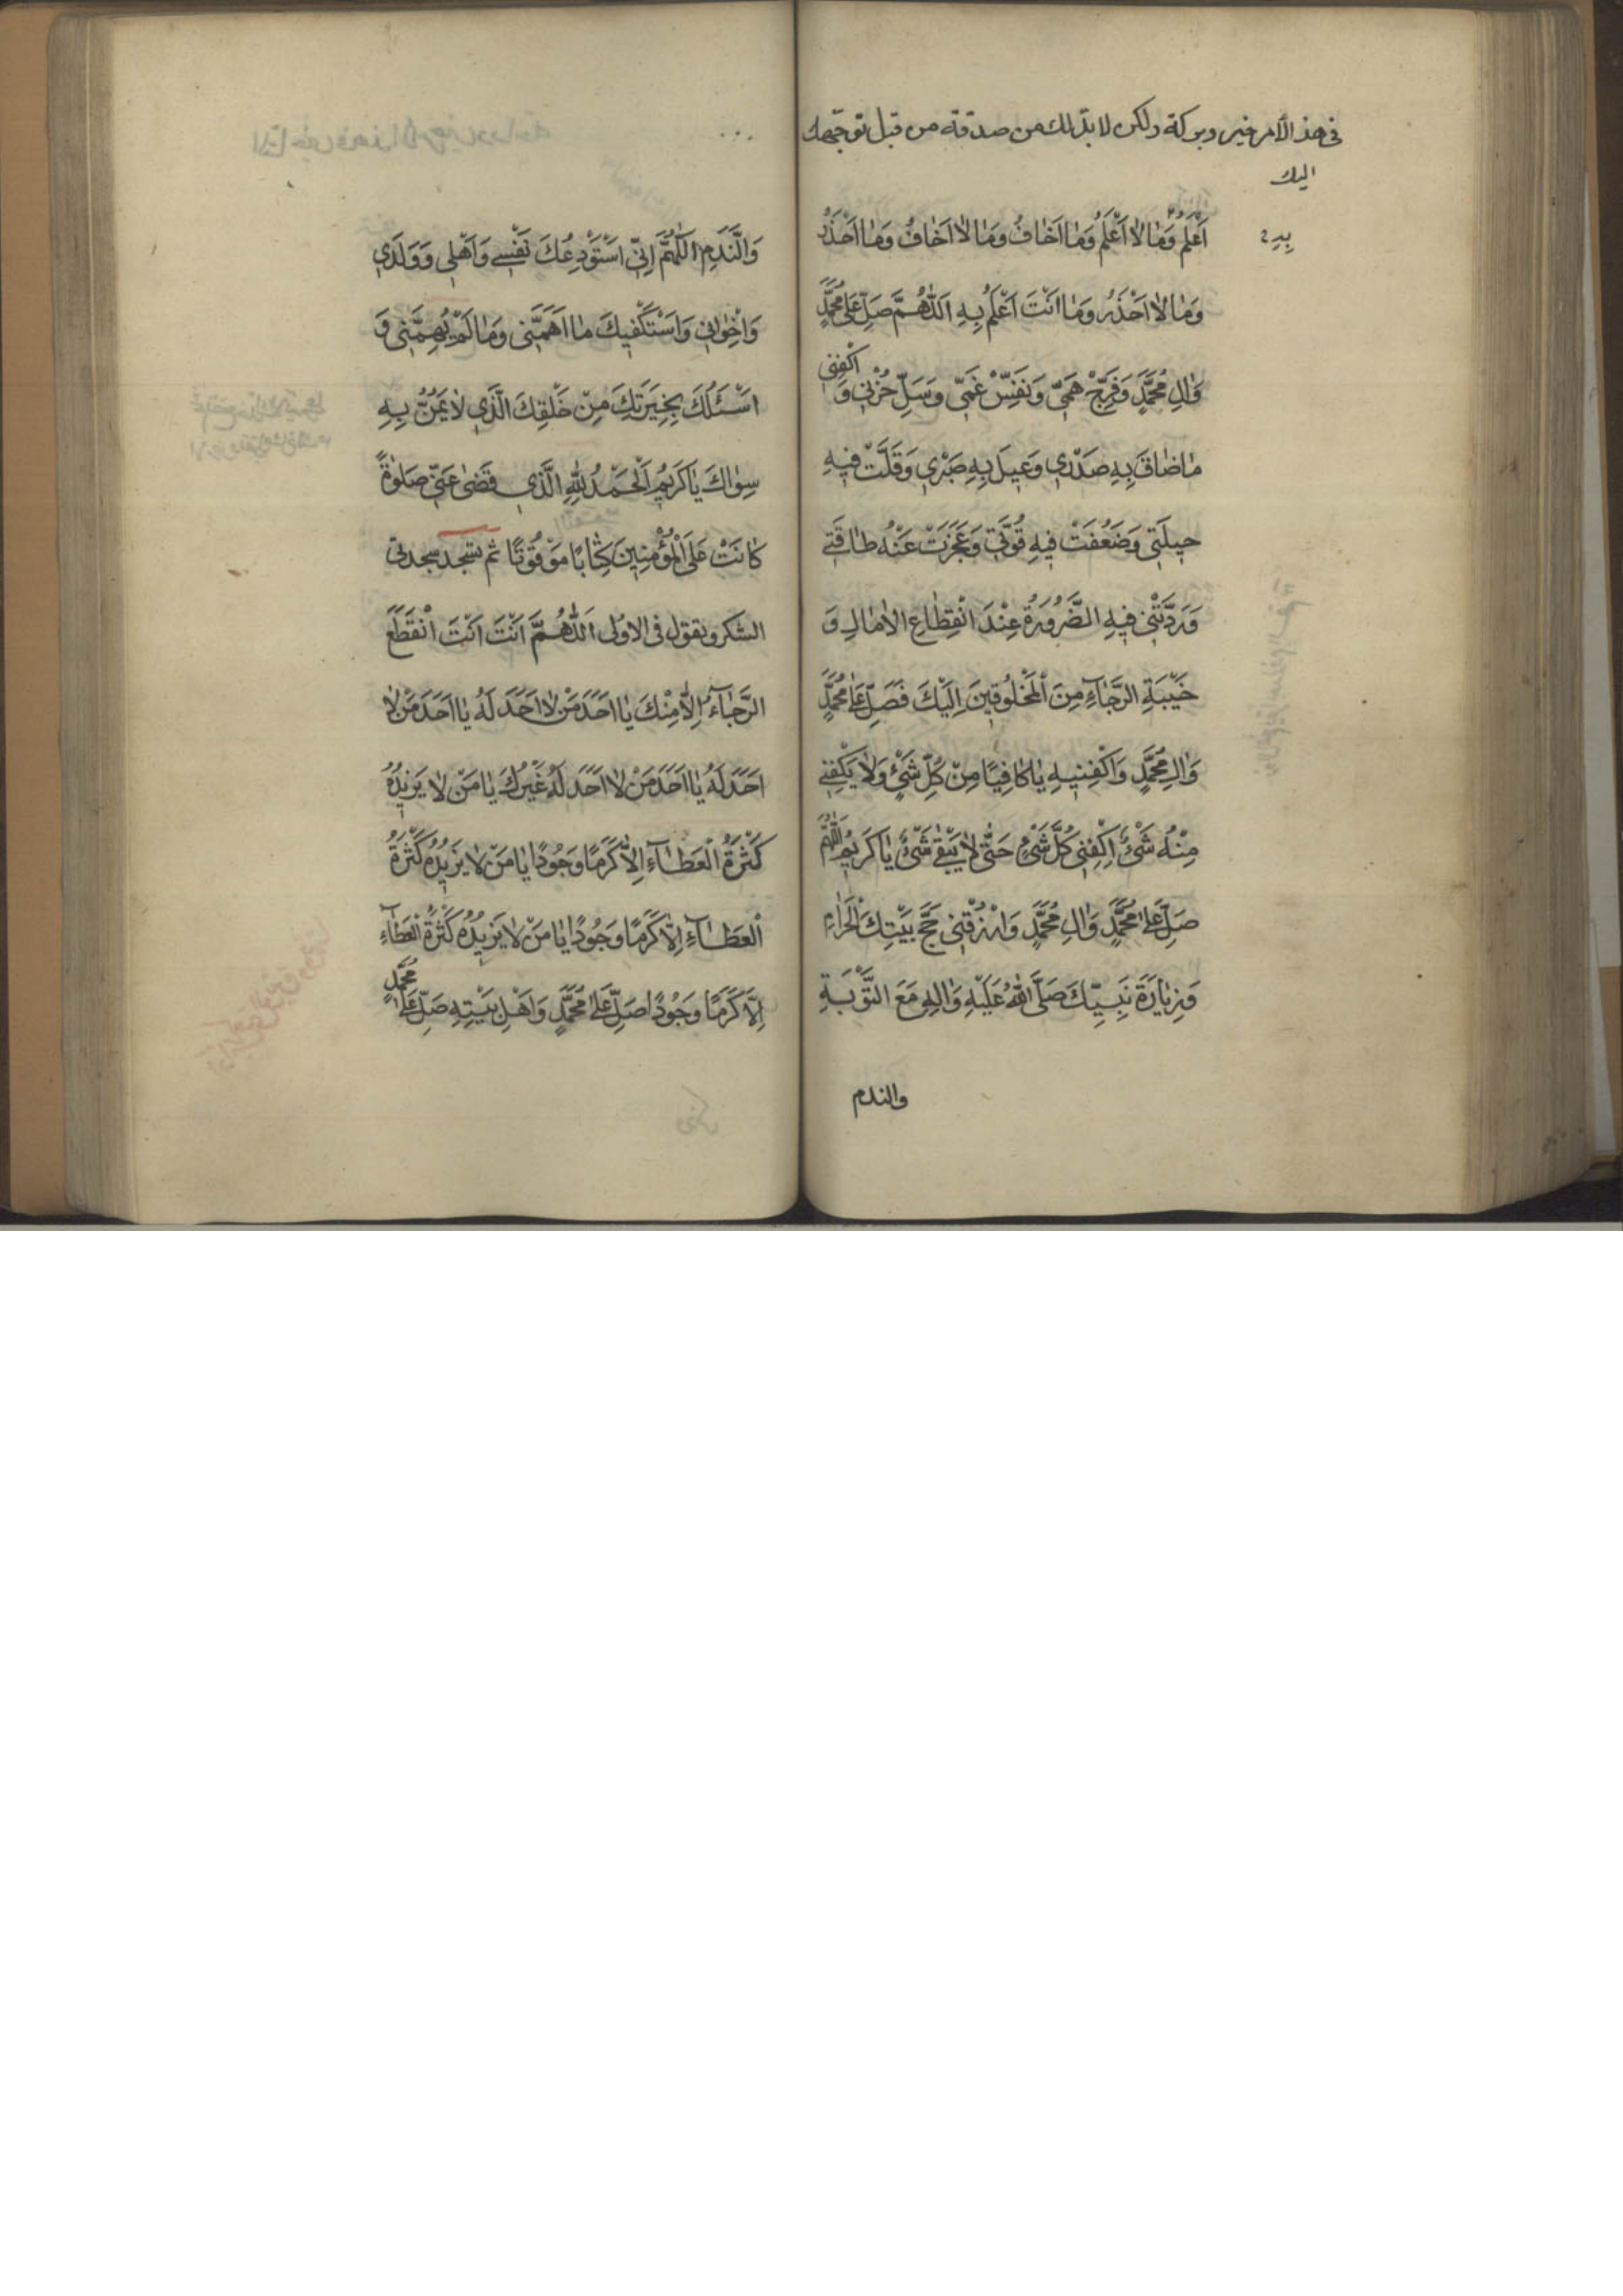 في هذا الأمر خير وبركة ولكن لا بد لك من صدقة من قبل توجهك
اليك
اَعْلَمُ وَمَا لَا اَعْلَمُ وَمَا اَخَافُ وَمَا لَا اَخَافُ وَمَا اَحْذَرُ
وَمَا لَا اَحْذَرُ وَمَا اَنْتَ اَعْلَمُ بِهِ اَللّٰهُمَّ صَلِّ عَلٰى مُحَمَّدٍ
وَاٰلِ مُحَمَّدٍ وَفَرِّجْ هَمّي وَنَفِّسْ غَمّي وَسَلِّ حُزْني وَ اكْفِني
مَا ضَاقَ بِهِ صَدْري وَعيلَ بِهِ صَبْري وَقَلَّتْ فيهِ
حيلَتي وَضَعُفَتْ فيهِ قُوَّتي وَعَجَزَتْ عَنْهُ طَاقَتي
وَرَدَّتْني فيهِ الضَّرُورَةُ عِنْدَ انْقِطَاعِ الاٰمَالِ وَ
خَيْبَةِ الرَّجَآءِ مِنَ الْمَخْلُوقينَ اِلَيْكَ فَصَلِّ عَلٰى مُحَمَّدٍ
وَاٰلِ مُحَمَّدٍ وَاكْفِنيهِ يَا كَافِيًا مِنْ كُلِّ شَئٍْ وَلَا يَكْفي
مِنْهُ شَئٌْ اِكْفِني كُلَّ شَئٍْ حَتّٰى لَا يَبْقٰى شَئٌْ يَا كَريمُ اللّٰهُمَّ
صَلِّ عَلٰى مُحَمَّدٍ وَاٰلِ مُحَمَّدٍ وَارْزُقْني حَجَّ بَيْتِكَ الْحَرَامِ
وَزِيَارَةَ نَبِيِّكَ صَلَّى اللّٰهُ عَلَيْهِ وَاٰلِهِ مَعَ التَّوْبَةِ
والندم
وَالنَّدَمِ اَللّٰهُمَّ اِنّي اَسْتَوْدِعُكَ نَفْسي وَاَهْلي وَوَلَدي
وَاِخْوَاني وَاَسْتَكْفيكَ مَا اَهَمَّني وَمَا لَمْ يُهِمَّني وَ
اَسْئَلُكَ بِخِيَرَتِكَ مِنْ خَلْقِكَ الَّذي لَا يَمُنُّ بِهِ
سِوَاكَ يَا كَريمُ اَلْحَمْدُ لِلّٰهِ الَّذي قَضٰى عَنّي صَلٰوةً
كَانَتْ عَلَى الْمُؤْمِنينَ كِتَابًا مَوْقُوتًا ثم يسجد سجدتي
الشكر ويقول في الاولى اَللّٰهُمَّ اَنْتَ اَنْتَ انْقَطَعَ
الرَّجَآءُ اِلَّا مِنْكَ يَا اَحَدَ مَنْ لَا اَحَدَ لَهُ يَا اَحَدَ مَنْ لَا
اَحَدَ لَهُ يَا اَحَدَ مَنْ لَا اَحَدَ لَهُ غَيْرُكَ يَا مَنْ لَا يَزيدُهُ
كَثْرَةُ الْعَطَآءِ اِلَّا كَرَمًا وَجُودًا يَا مَنْ لَا يَزيدُهُ كَثْرَةُ
الْعَطَآءِ اِلَّا كَرَمًا وَجُودًا يَا مَنْ لَا يَزيدُهُ كَثْرَةُ الْعَطَآءِ
اِلَّا كَرَمًا وَجُودًا صَلِّ عَلٰى مُحَمَّدٍ وَاَهْلِ بَيْتِهِ صَلِّ عَلٰى مُحَمَّدٍ